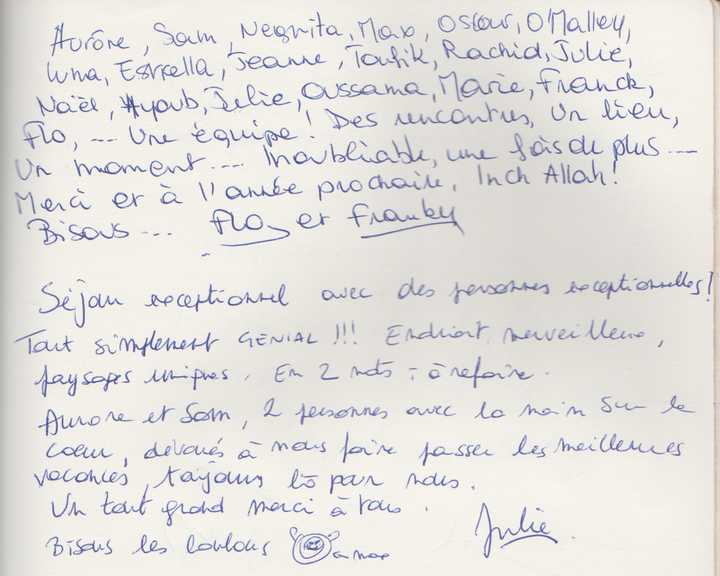 Aurôre, Sam, Negrita, Max, Oscar, O'Malley,
Luna, Estrella, Jeanne, Toufik, Rachid, Julie,
Naël, Ayoub, Julie, Oussama, Marie, Franck,
Flo, ... Une équipe ! Des rencontres, un lieu,
Un moment ... Inoubliable, une fois de plus ...
Merci et à l'année prochaine, Inch Allah !
Bisous ... Flo et Franky
Séjour exceptionnel avec des personnes exceptionnelles !
Tout simplement GENIAL !!! Endroit merveilleux,
paysages uniques. En 2 mots : à refaire.
Aurore et Sam, 2 personnes avec la main sur le
coeur, dévoués à nous faire passer les meilleures
vacances, toujours là pour nous.
Un tout grand merci à vous.
Bisous les loulous
Julie